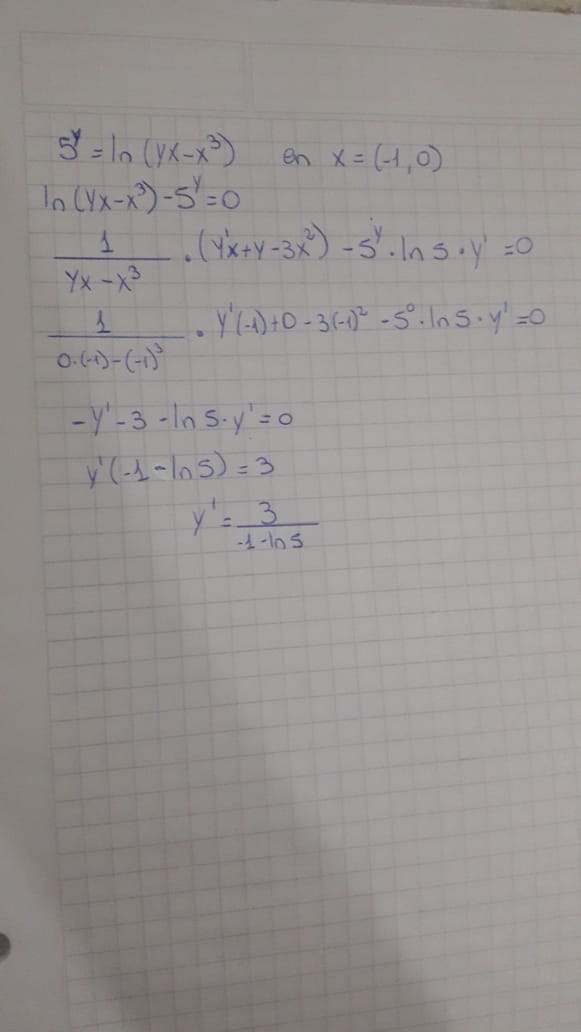 5^y = ln (yx - x^3) en x = (-1, 0)
ln (yx - x^3) - 5^y = 0
1/(yx - x^3) · (y'x + y - 3x^2) - 5^y · ln 5 · y' = 0
1/(0·(-1) - (-1)^3) · y'(-1) + 0 - 3(-1)^2 - 5^0 · ln 5 · y' = 0
-y' - 3 - ln 5 · y' = 0
y'(-1 - ln 5) = 3
y' = 3/(-1 - ln 5)